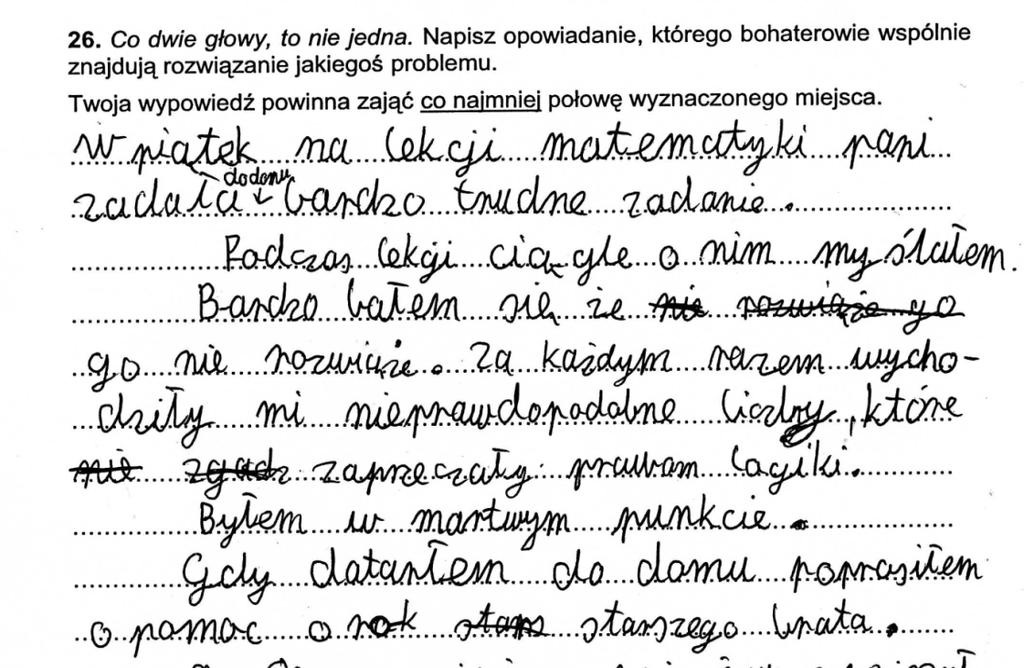 26. Co dwie głowy, to nie jedna. Napisz opowiadanie, którego bohaterowie wspólnie
znajdują rozwiązanie jakiegoś problemu.
Twoja wypowiedź powinna zająć co najmniej połowę wyznaczonego miejsca.
W piątek na lekcji matematyki pani
do domu
zadała bardzo trudne zadanie.
Podczas lekcji ciągle o nim myślałem.
Bardzo bałem się że nie rozwiąże go
go nie rozwiąże. Za każdym razem wycho-
dziły mi nieprawdopodobne liczby, które
nie zgadz zaprzeczały prawom logiki.
Byłem w martwym punkcie.
Gdy dotarłem do domu poprosiłem
o pomoc o rok stars starszego brata.